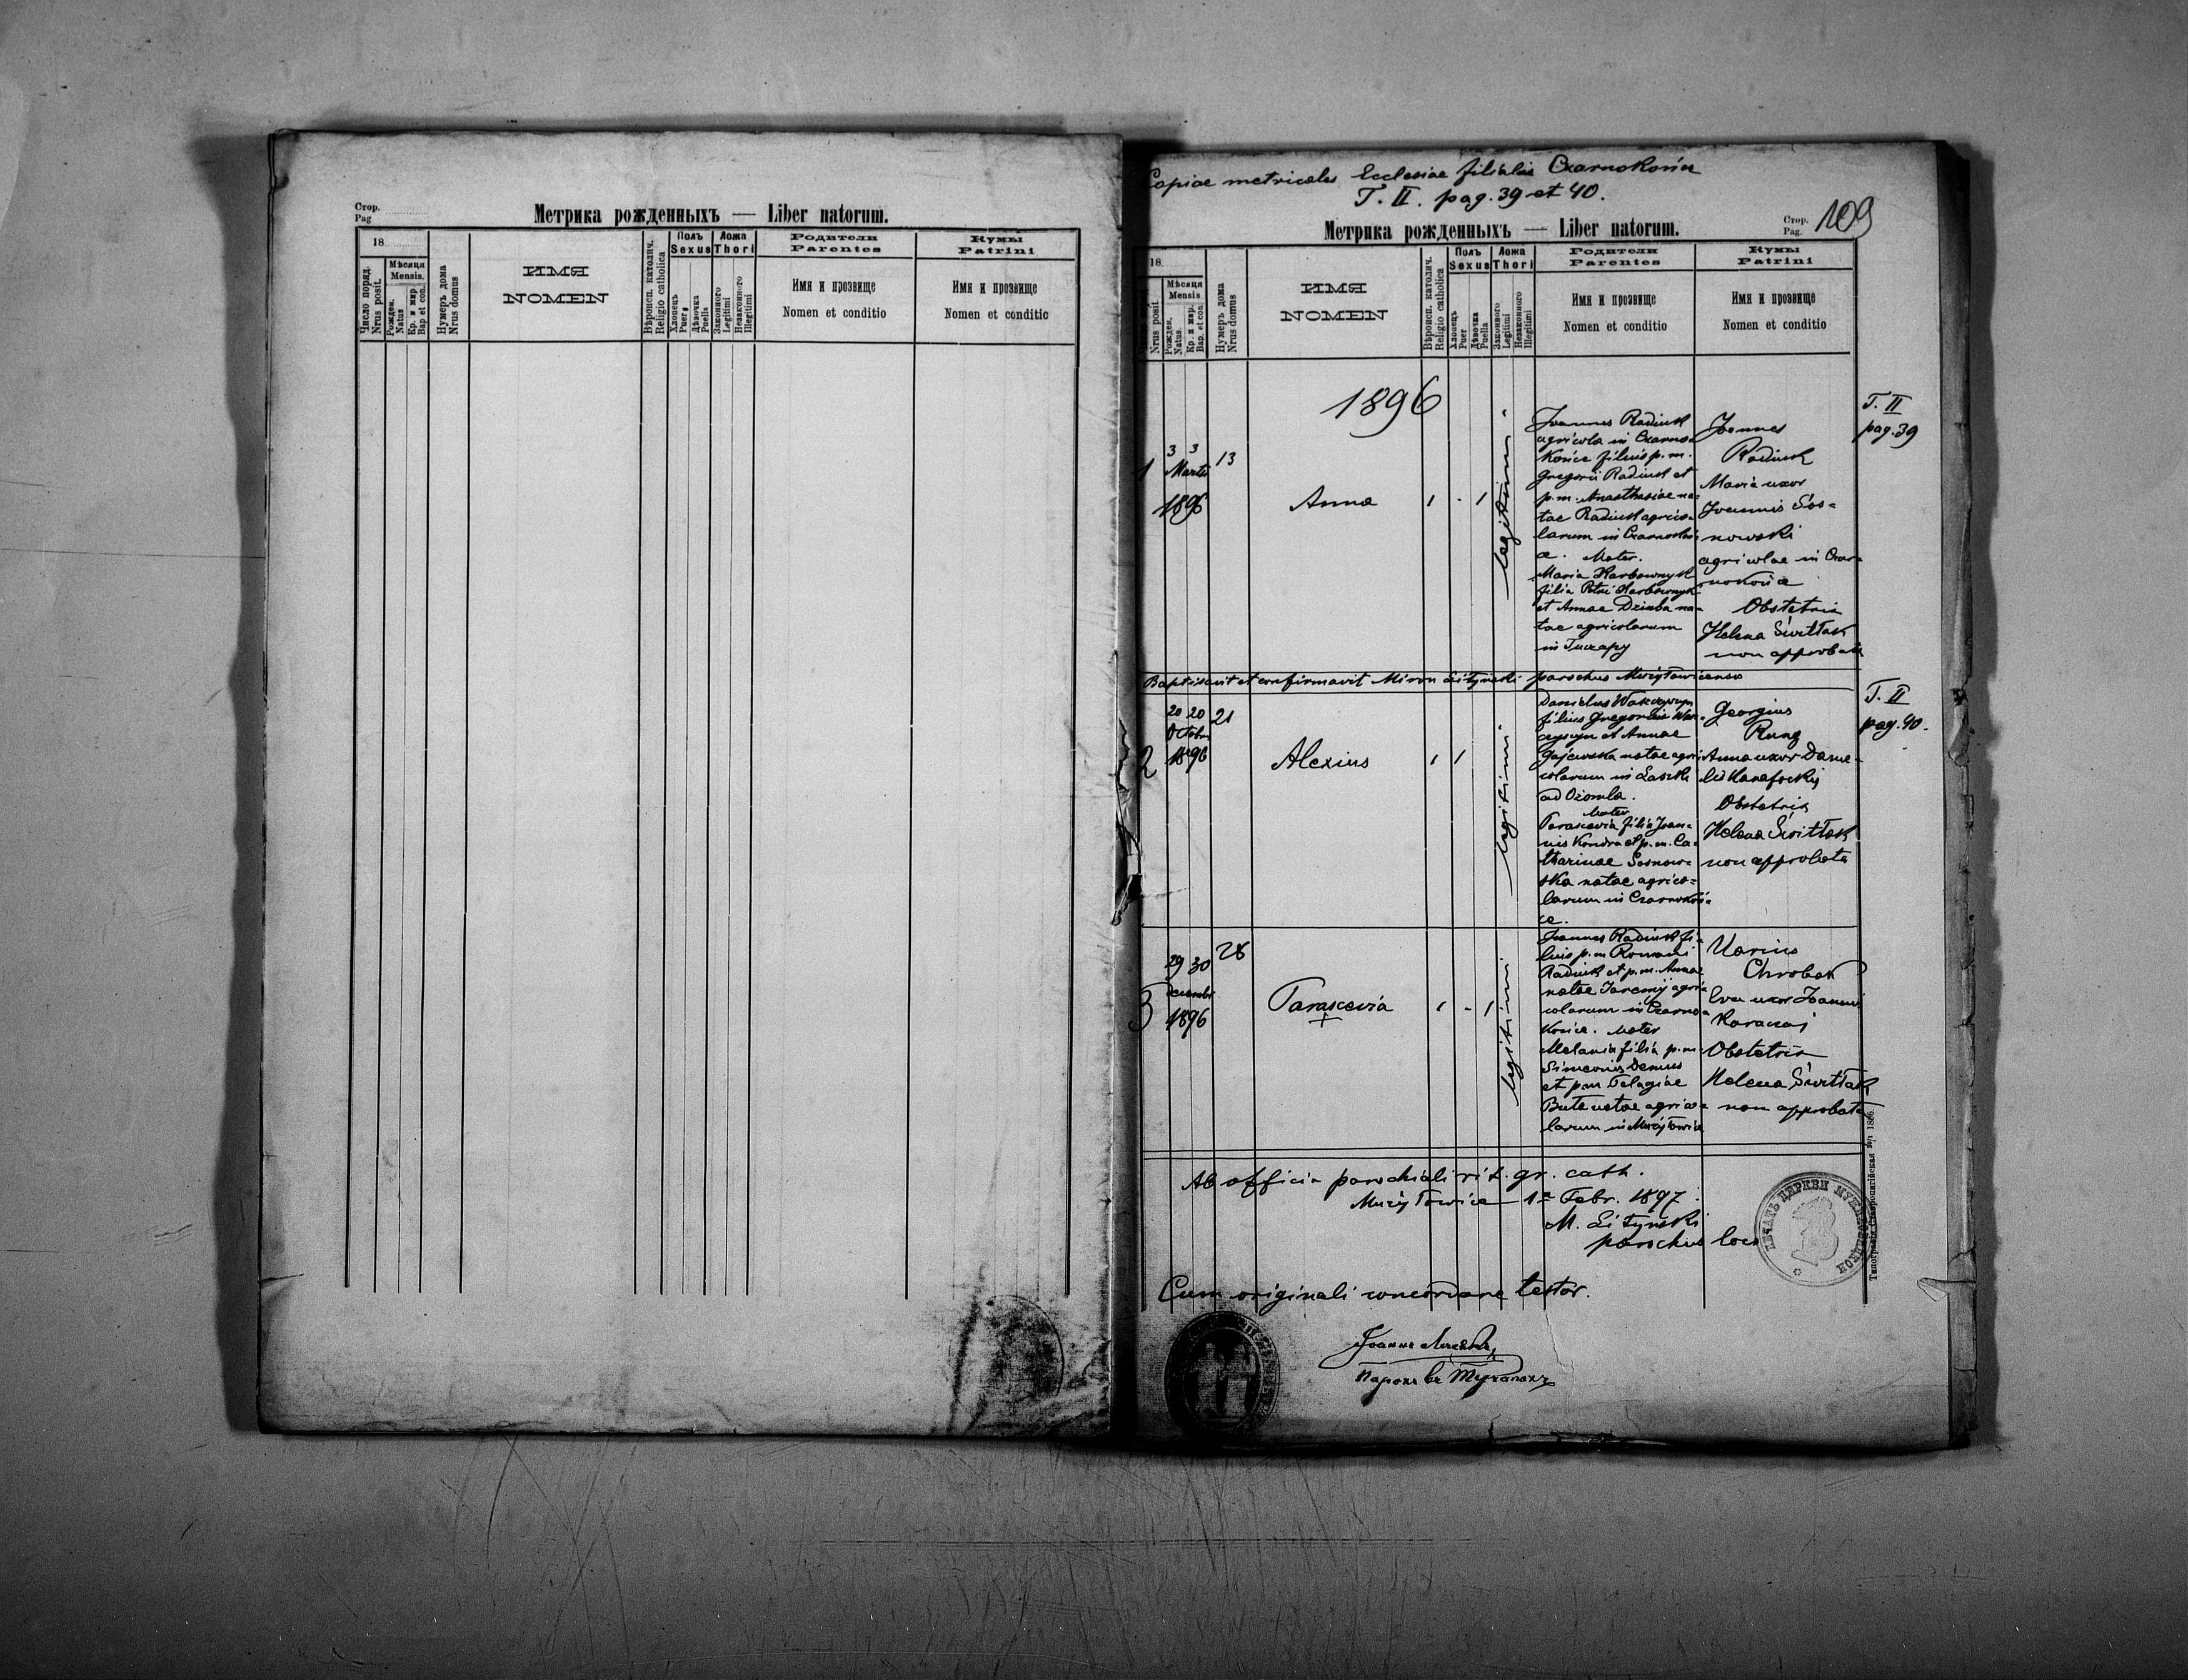 Стор.
Pag
Метрика рожденныхъ — Liber natorum.
18
Число поряд.
Nrus posit.
Мѣсяця
Mensis.
Рожден.
Natus
Кр. и мир.
Bap et con.
Нумеръ дома
Nrus domus
ИМЯ
NOMEN
Вѣроисп. католич.
Religio catholica
Полъ
Sexus
Хлопецъ
Puer
Дѣвочка
Puella
Ложа
Thori
Законного
Legitimi
Незаконного
Illegitimi
Родители
Parentes
Имя и прозвище
Nomen et conditio
Кумы
Patrini
Имя и прозвище
Nomen et conditio
Copiae metricales Ecclesiae filialis Czarnokońce
T. II. pag. 39 et 40.
Метрика рожденныхъ — Liber natorum.
Стор.
Pag.
109
18
Nrus posit
Мѣсяця
Mensis
Рожден.
Natus.
Кр. и мир.
Bap. et con
Нумеръ дома
Nrus domus
ИМЯ
NOMEN
Вѣроисп. католич.
Religio catholica
Полъ
Sexus
Хлопецъ
Puer
Дѣвочка
Puella
Ложа
Thori
Законного
Legitimi
Незаконного
Illegitimi
Родители
Parentes
Имя и прозвище
Nomen et conditio
Кумы
Patrini
Имя и прозвище
Nomen et conditio
1896
1
3 3
Martii
1896
13
Anna
legitimi
Joannes Radiuk
agricola in Czarno-
końce filius p.m.
Gregorii Radiuk et
p.m. Anasthasiae na-
tae Radiuk agrico-
larum in Czarnokoń-
ce. Mater.
Maria Harbownyk
filia Petri Harbownyk
et Annae Dziuba na-
tae agricolarum
in Tuczapy
Joannes
Radiuk
Maria uxor
Joannis Sos=
nowski
agricolae in Czar-
nokońce
Obstetrix
Helena Switłak
non approbata
T. II
pag. 39
Baptisavit et confirmavit Miron Litynski parochus
2
20 20
Octobr.
1896
21
Alexius
legitimi
Daniel
filius Gregorii
et Annae
Gajewska natae agri
colarum in Laszki
ad Ożomla.
Mater
Parascevia filia Joan-
nis Kondra et p.m. Ca-
tharinae Sosnow-
ska natae agrico=
larum in Czarnokoń-
ce.
Georgius
Anna uxor Danie-
lis
Obstetrix
Helena Switłak
non approbata
T. II
pag. 40.
3
29 30
decembr
1896
28
Parascevia
legitimi
Joannes Radiuk fi-
lius p.m Romani
Radiuk et p.m. Annae
natae Jaremij agri-
colarum in Czarno-
końce. Mater
Melania filia p.m.
Simeonis Demus
et p.m Pelagiae
natae agrico-
larum in
Chrobak
Eva uxor Joannis
Obstetrix
Helena Switłak
non approbata
Ab officio parochiali rit. gr. cath.
1ª Febr. 1897
M. Litynski
parochus loci
Cum originali concordare testor.
Типографія Ставропигійская